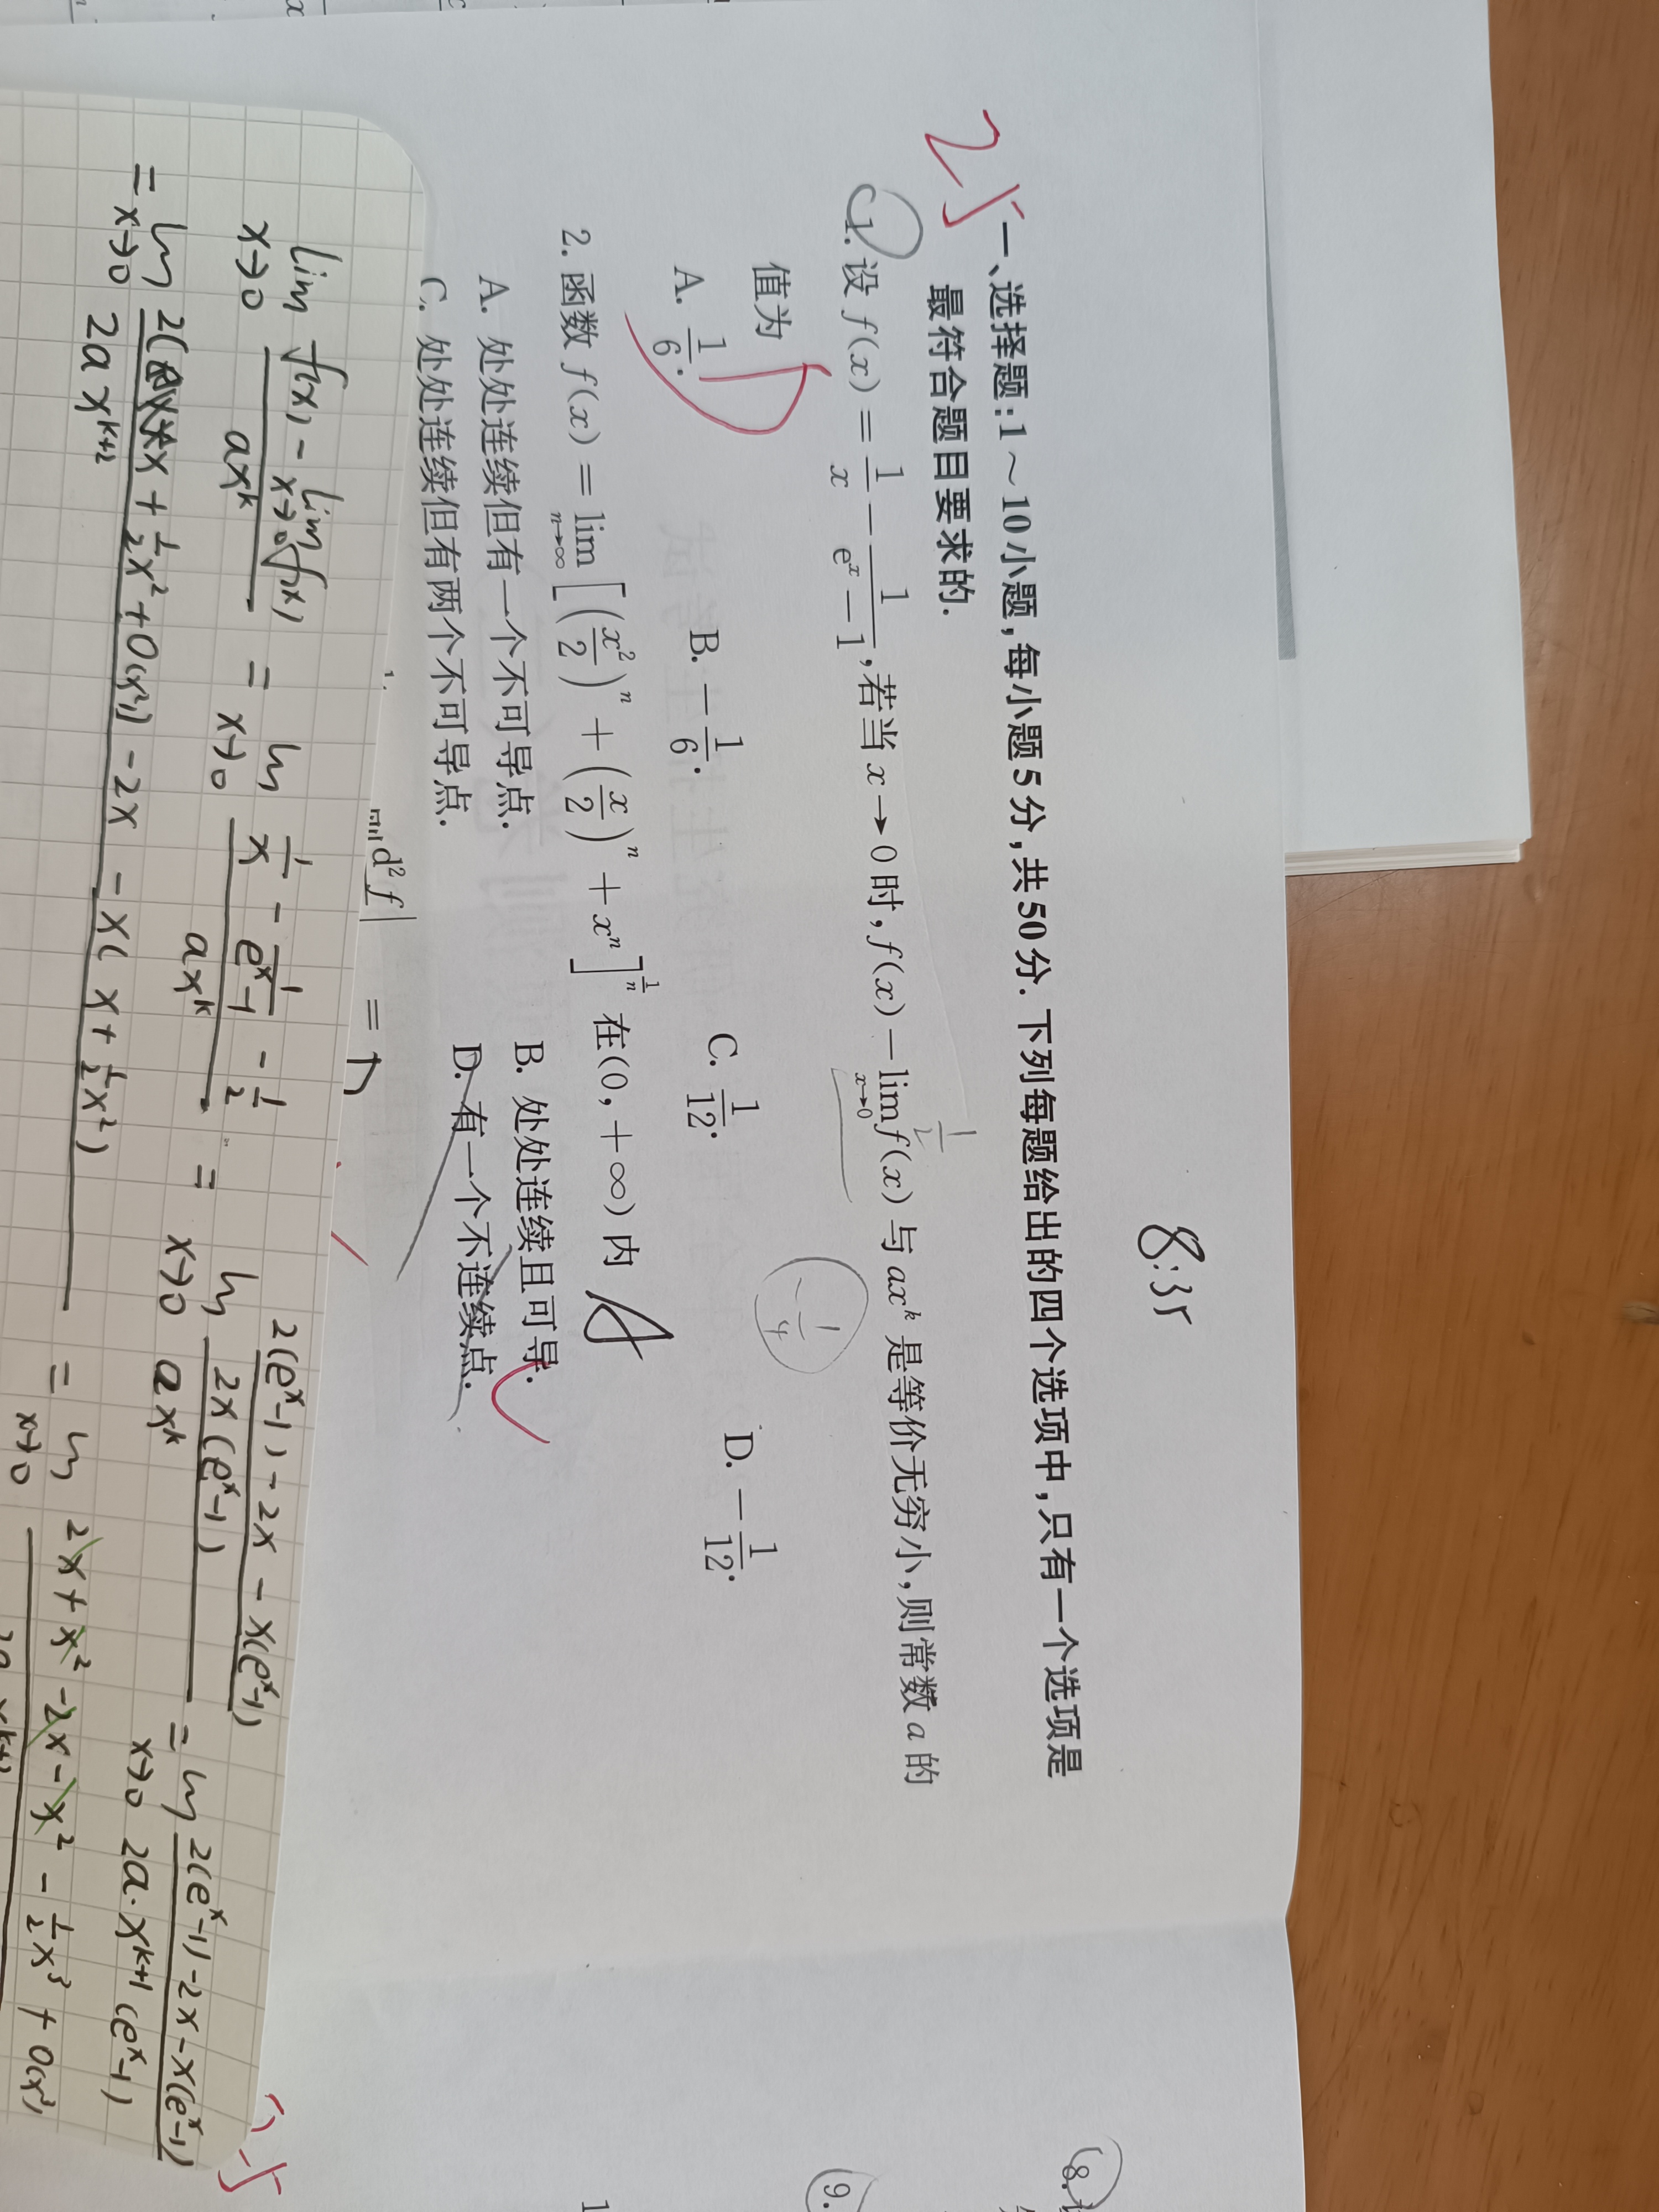 8:35
25
一、选择题：1～10小题，每小题5分，共50分．下列每题给出的四个选项中，只有一个选项是
最符合题目要求的．
1. 设 f(x) = 1/x − 1/(eˣ − 1)，若当 x→0 时，f(x) − lim_{x→0} f(x) 与 axᵏ 是等价无穷小，则常数 a 的
值为
A. 1/6． B. −1/6． C. 1/12． D. −1/12．
−1/4
2. 函数 f(x) = lim_{n→∞} [(x²/2)ⁿ + (x/2)ⁿ + xⁿ]^{1/n} 在(0, +∞)内
A. 处处连续但有一个不可导点． B. 处处连续且可导．
C. 处处连续但有两个不可导点． D. 有一个不连续点．
d²f| =
lim_{x→0} (f(x) − lim_{x→0} f(x))/(axᵏ) = lim_{x→0} (1/x − 1/(eˣ−1) − 1/2)/(axᵏ) = lim_{x→0} ((2(eˣ−1) − 2x − x(eˣ−1))/(2x(eˣ−1)))/(axᵏ) = lim_{x→0} (2(eˣ−1) − 2x − x(eˣ−1))/(2a·xᵏ⁺¹(eˣ−1))
= lim_{x→0} (2(x + ½x² + o(x²)) − 2x − x(x + ½x²))/(2axᵏ⁺²) = lim_{x→0} 2x + x² − 2x − x² − ½x³ + o(x³)
(8.
(9.